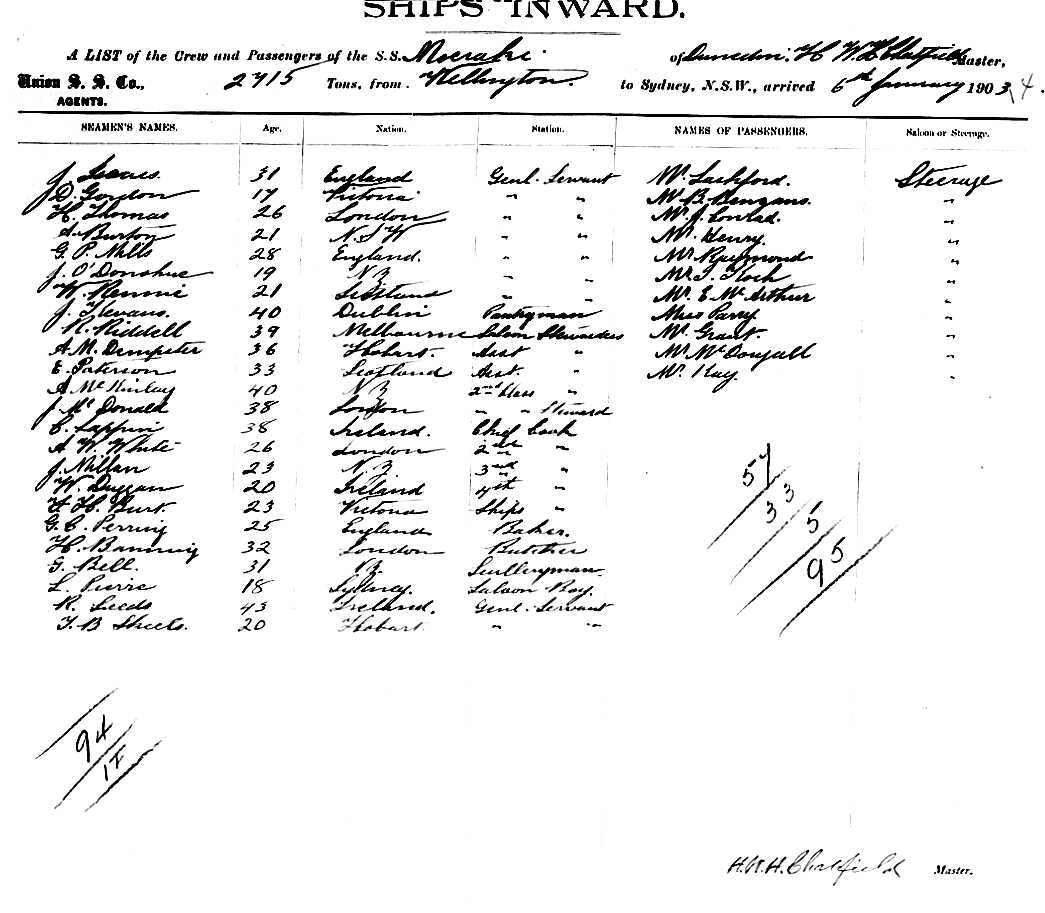 SHIPS INWARD.
A LIST of the Crew and Passengers of the S.S. Moeraki of Dunedin, H W H Chatfield Master,
Union S. S. Co., 2715 Tons, from Wellington to Sydney, N.S.W., arrived 6th January 1903 4.
AGENTS.
SEAMEN'S NAMES. Age. Nation. Station. NAMES OF PASSENGERS. Saloon or Steerage.
J. 31 England Genl. Servant Mr. Lashford. Steerage
D. Gordon 17 Victoria " " Mr B. " 
H. Thomas 26 London " " Mr J. Conrad. "
A. Burton 21 N.S.W " " Mr. Henry. "
G. P. Mills 28 England. " " Mr Raymond "
J. O'Donohue 19 N.Z " " Mr. Koch "
W. Rennie 21 Scotland " " Mr. E. McArthur "
J. 40 Dublin Pantryman Miss Parry "
R. Riddell 39 Melbourne Saloon Stewardess Mr Grant. "
A. M. Dempster 36 Hobart. Asst " Mr McDougall "
E. Paterson 33 Scotland Asst. " Mr. Kay. "
A McKinlay 40 N.Z 2nd Class "
J. McDonald 38 London " " Steward
C. Lappin 38 Ireland. Chief Cook
A W. White 26 London 2nd "
J. Millan 23 N.Z. 3rd "
W. Duggan 20 Ireland 4th "
H. Burt. 23 Victoria Ships "
G. C. Perring 25 England Baker.
H. Banning 32 London Butcher
G. Bell. 31 N.Z. Sculleryman.
L. Pierre 18 Sydney. Saloon Boy.
R. Leeds 43 Ireland. Genl. Servant
T. B Sheets. 20 Hobart. " "
57
33
5
95
94
17
H.W.H. Chatfield Master.